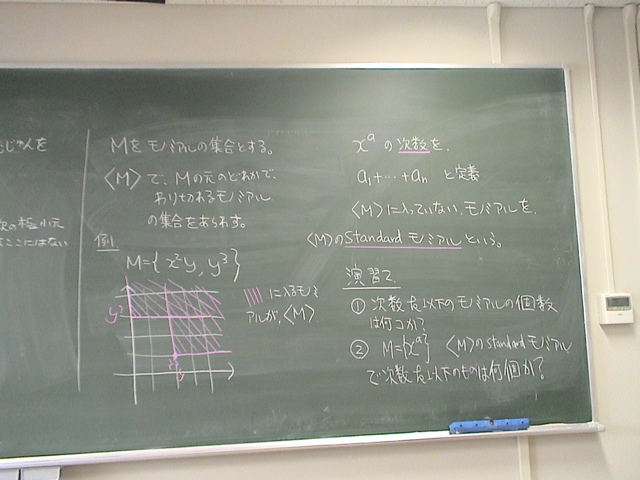 じゃんを
次の極小元
ここにはない
Mをモノミアルの集合とする。
〈M〉で、Mの元のどれかで、
わり切れるモノミアル
の集合をあらわす。
例1.
M={x²y, y³}
y³
に入るモノミ
アルが、〈M〉
x^a の次数を、
a₁+…+aₙ と定義
〈M〉に入っていない、モノミアルを、
〈M〉のstandardモノミアルという。
演習2
① 次数 以下のモノミアルの個数
は何コか?
② M={x^a} 〈M〉のstandardモノミアル
で次数 以下のものは何個か?